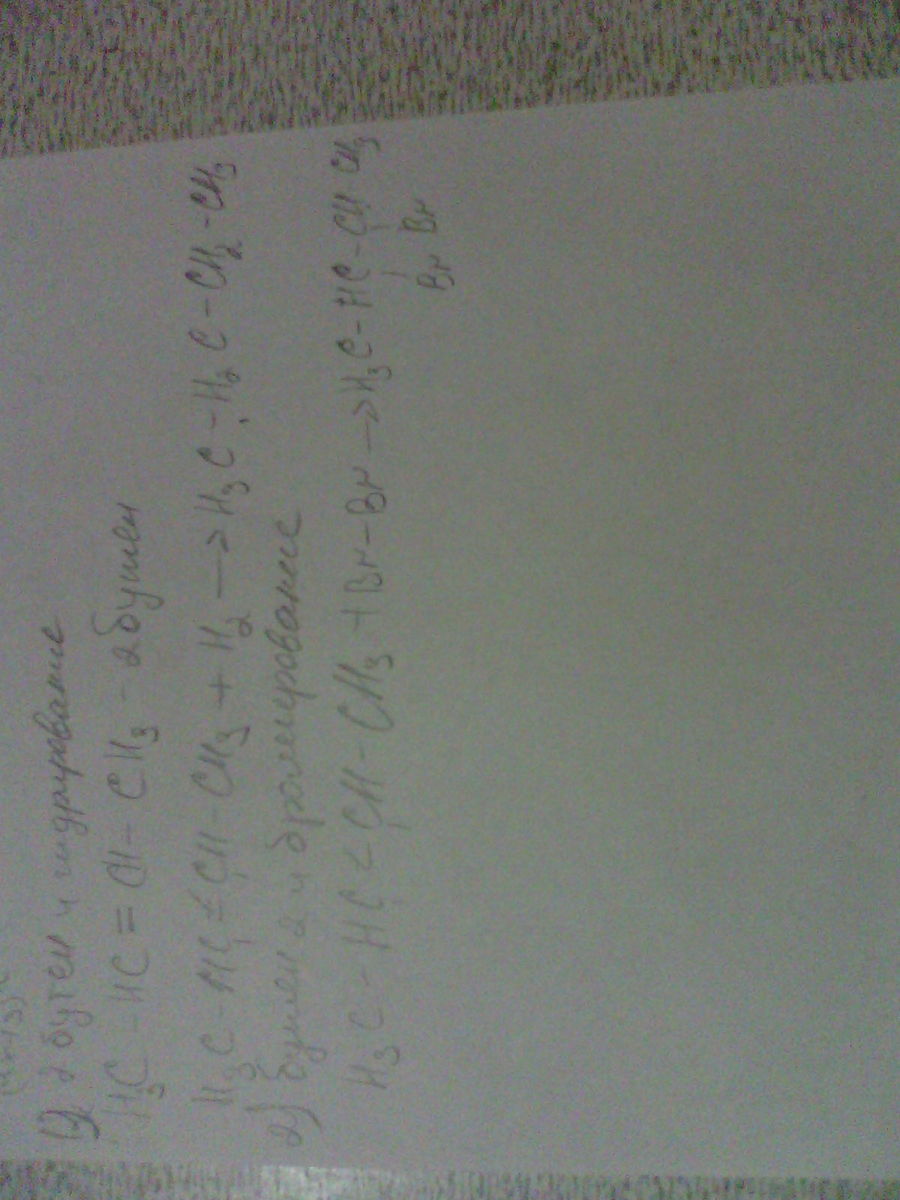 1) 2 бутен и гидрирование
H₃C - HC = CH - CH₃ - 2 бутен
H₃C - HC = CH - CH₃ + H₂ → H₃C - H₂C - CH₂ - CH₃
2) бутен 2 и бромирование
H₃C - HC = CH - CH₃ + Br - Br → H₃C - HC - CH CH₃
Br Br